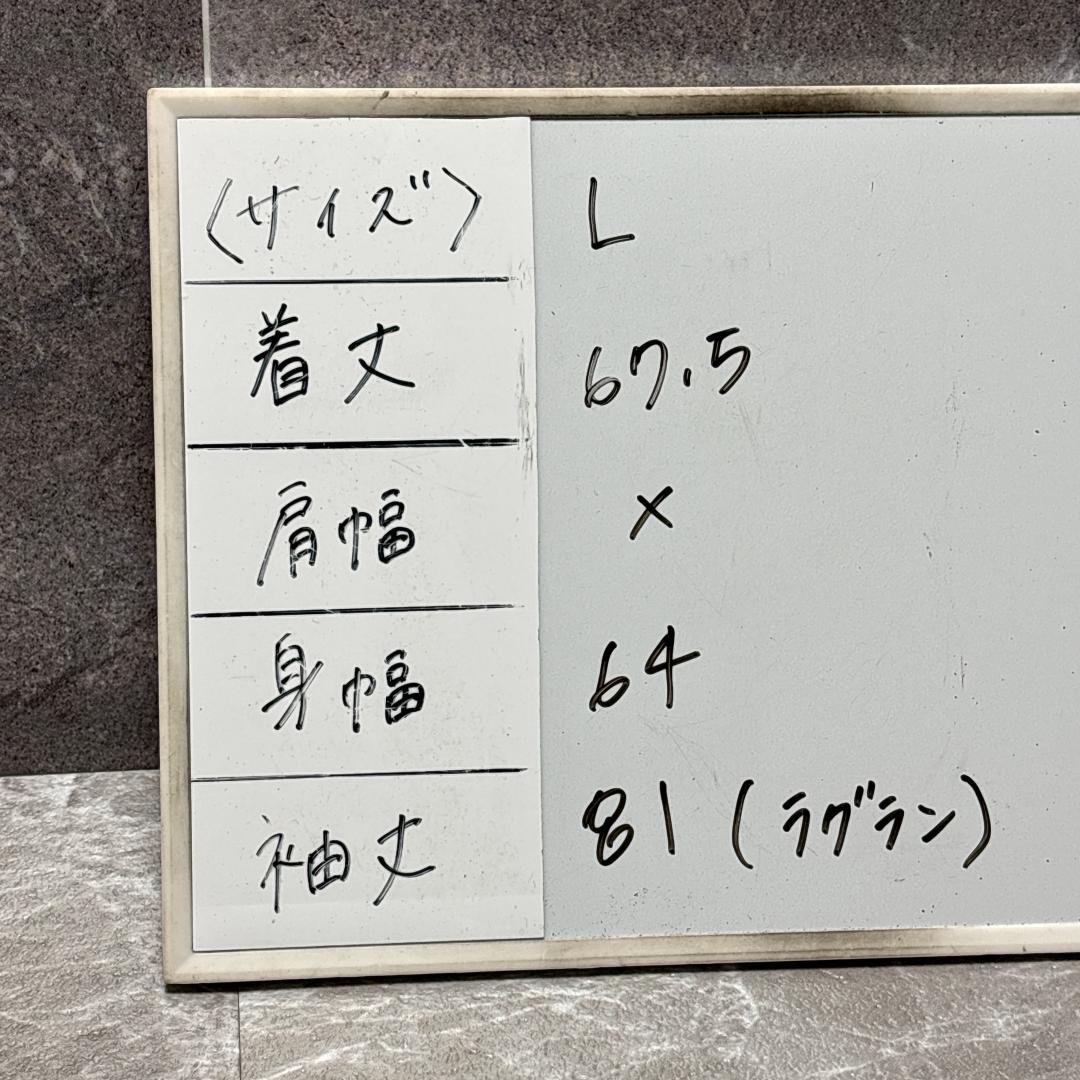 〈サイズ〉 L
着丈 67.5
肩幅 ×
身幅 64
袖丈 81 (ラグラン)